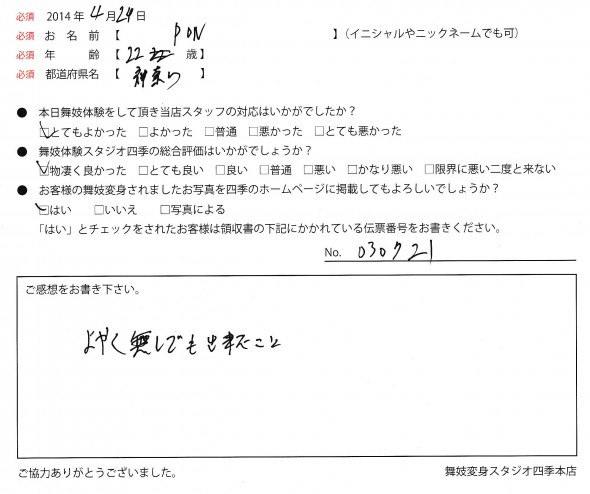 必須 2014 年 4 月 24 日
必須 お 名 前 【 PON 】（イニシャルやニックネームでも可）
必須 年 齢 【 22 歳】
必須 都道府県名 【 神奈川 】
● 本日舞妓体験をして頂き当店スタッフの対応はいかがでしたか？
☑とてもよかった □よかった □普通 □悪かった □とても悪かった
● 舞妓体験スタジオ四季の総合評価はいかがでしょうか？
☑物凄く良かった □とても良い □良い □普通 □悪い □かなり悪い □限界に悪い二度と来ない
● お客様の舞妓変身されましたお写真を四季のホームページに掲載してもよろしいでしょうか？
☑はい □いいえ □写真による
「はい」とチェックをされたお客様は領収書の下記にかかれている伝票番号をお書きください。
No. 030721
ご感想をお書き下さい。
よやく無しでも出来たこと
ご協力ありがとうございました。 舞妓変身スタジオ四季本店